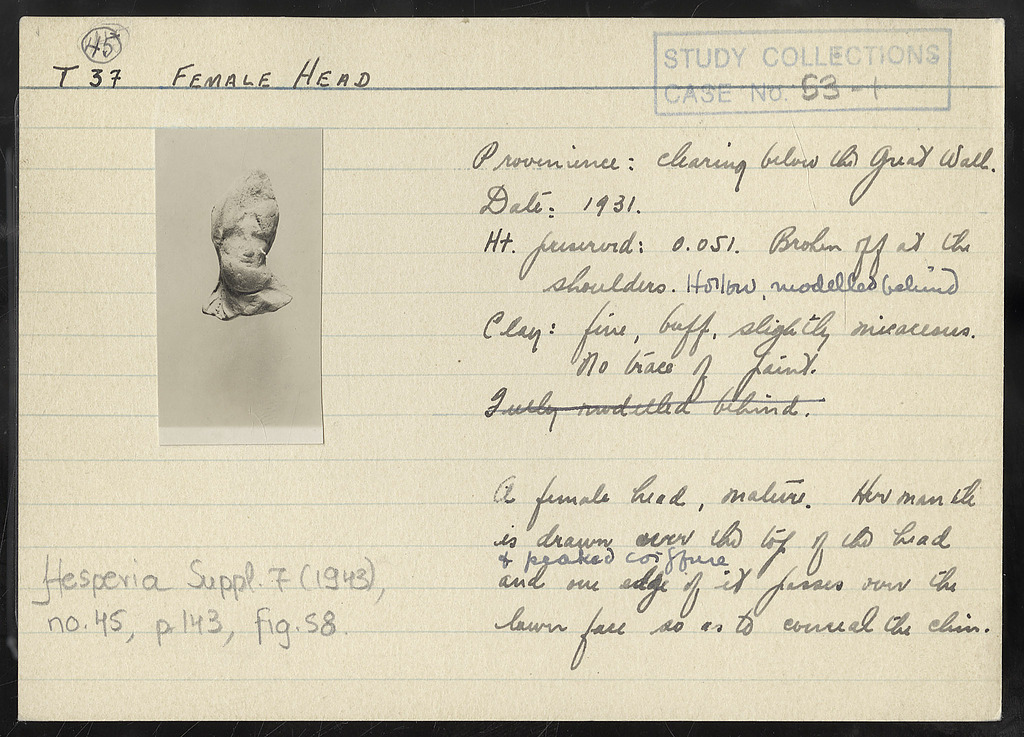 45
T 37 FEMALE HEAD
STUDY COLLECTIONS
CASE No. 53-1
Provenience: clearing below the Great Wall.
Date: 1931.
Ht. preserved: 0.051. Broken off at the
shoulders. Hollow, modelled behind
Clay: fine, buff, slightly micaceous.
No trace of paint.
Fully modelled behind.
A female head, mature. Her mantle
is drawn over the top of the head
& peaked coiffure
and one edge of it passes over the
lower face so as to conceal the chin.
Hesperia Suppl. 7 (1943),
no. 45, p. 143, fig. 58.